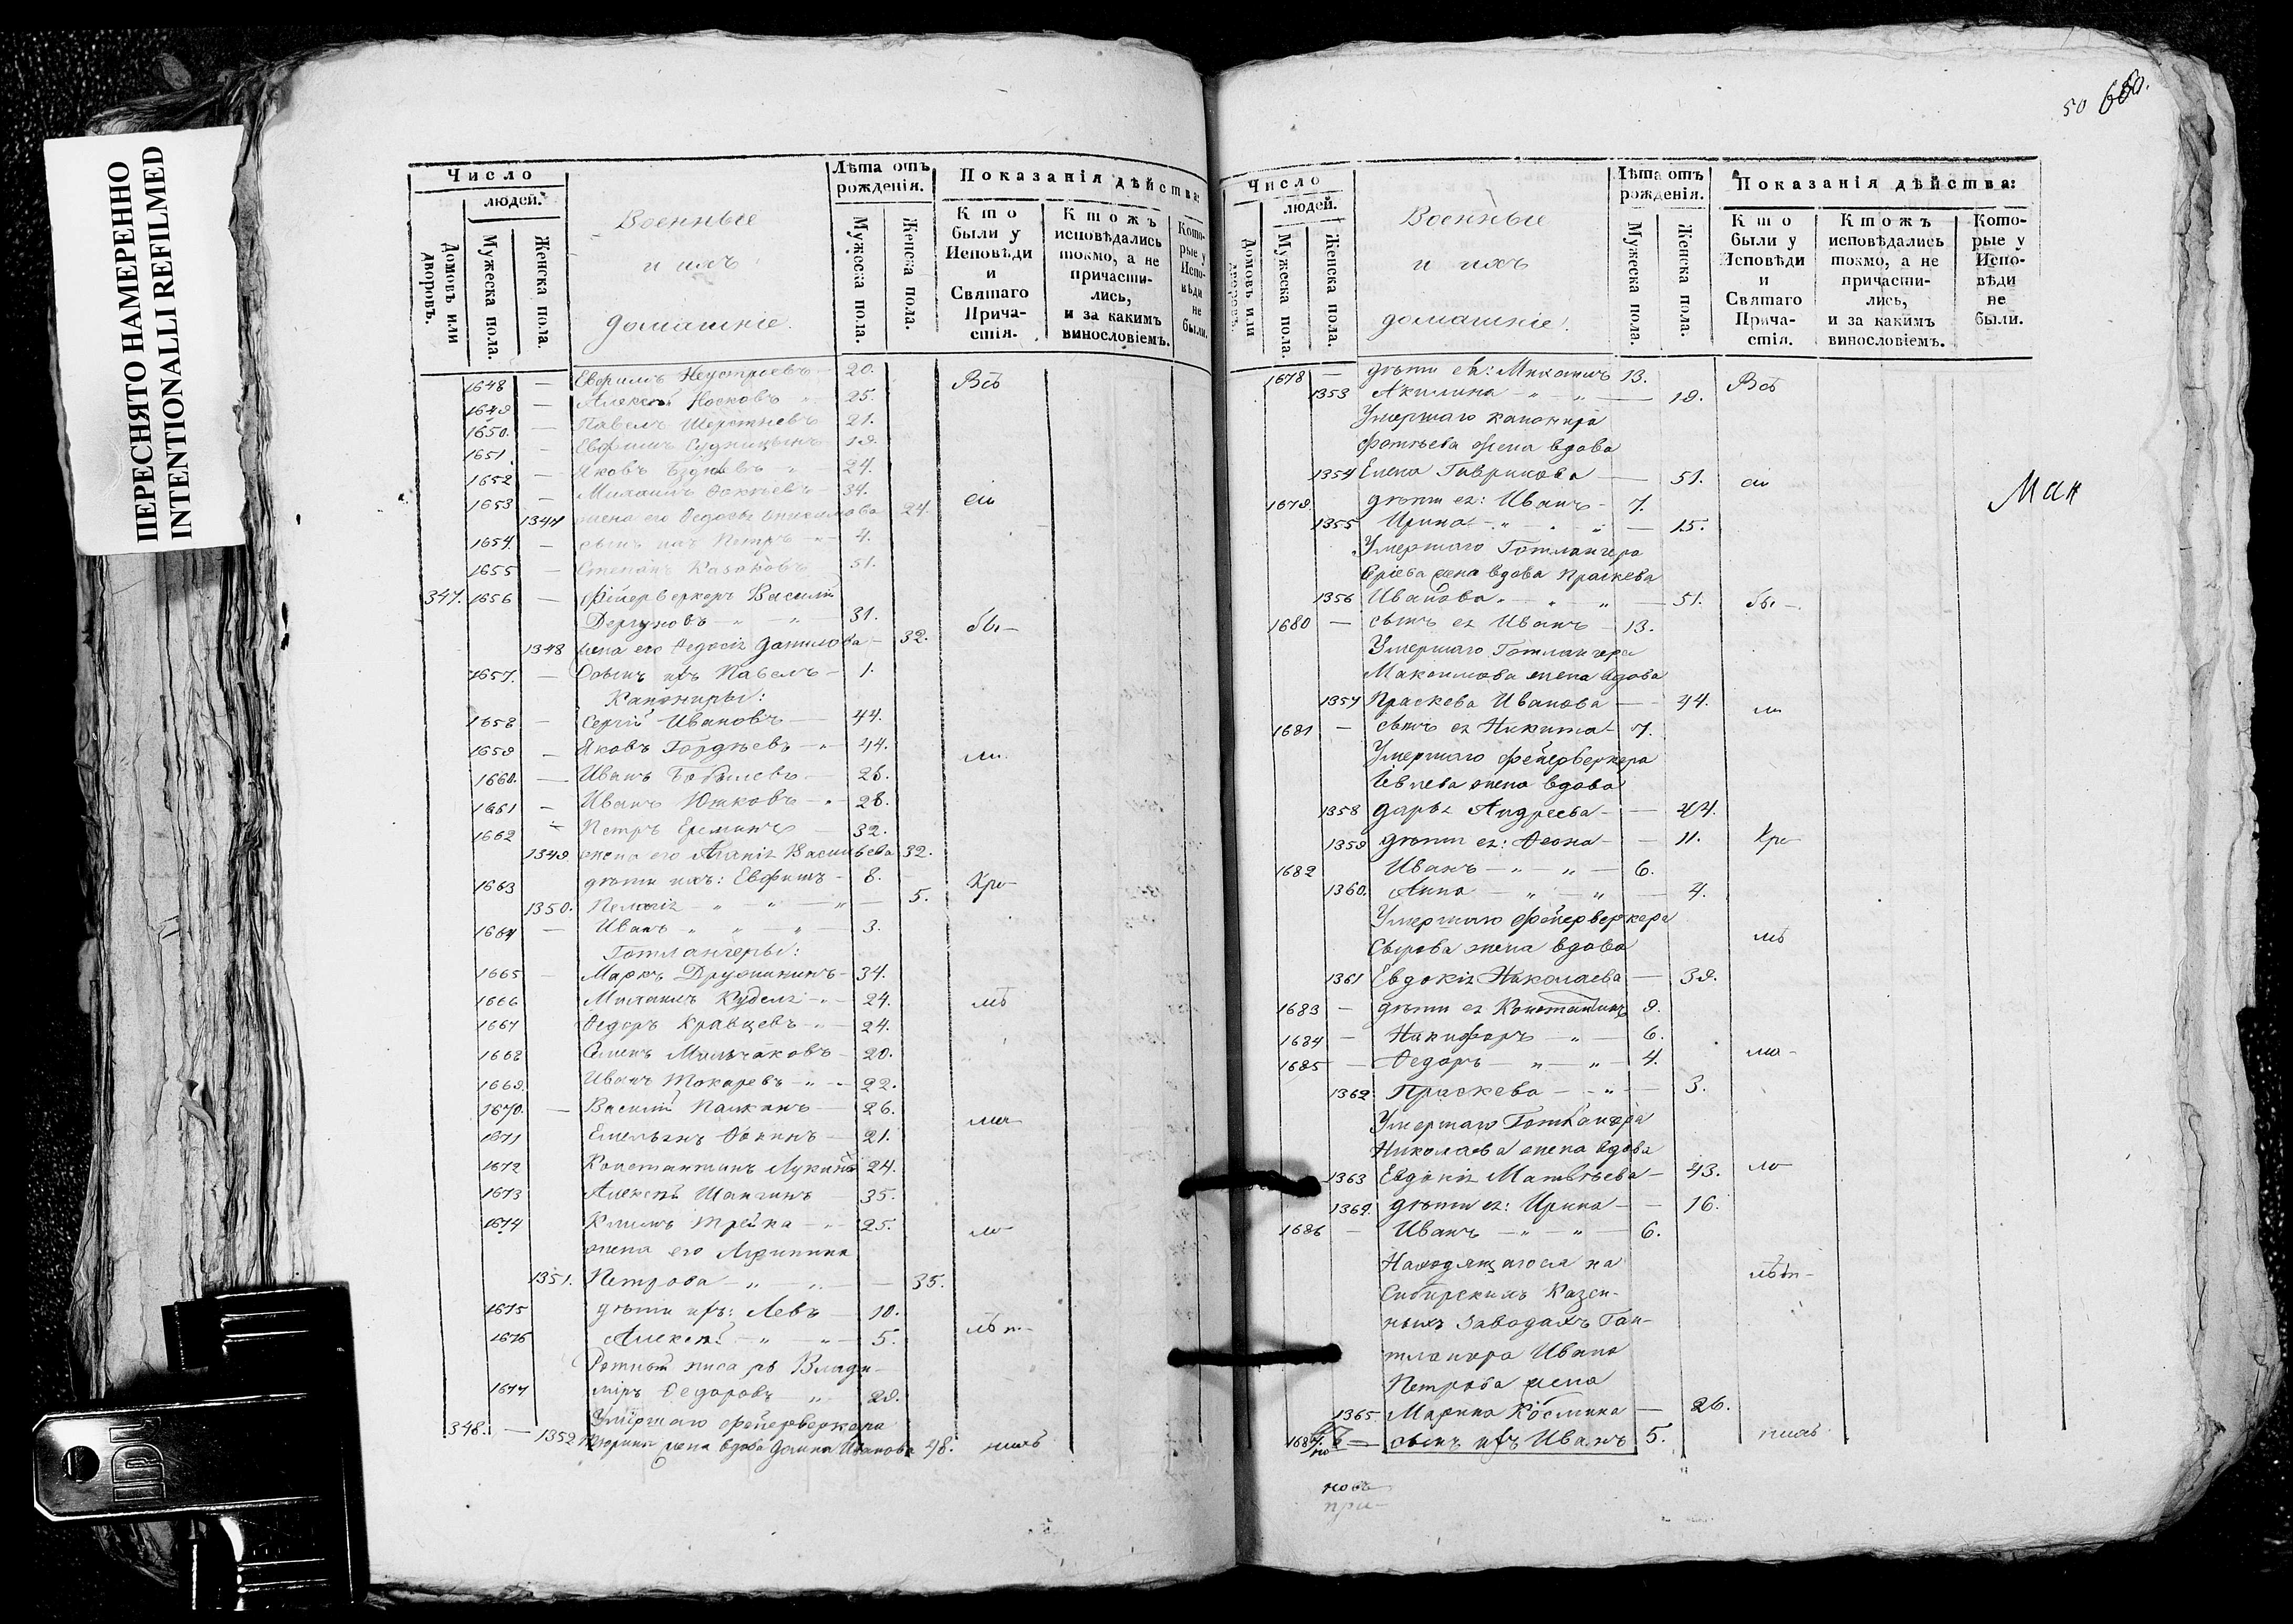 ПЕРЕСНЯТО НАМЕРЕННО
INTENTIONALLI REFILMED
Число
людей.
Домовъ или дворовъ.
Мужеска пола.
Женска пола.
Военные
и ихъ
домашніе.
Лѣта отъ рожденія.
Мужеска пола.
Женска пола.
Показанія дѣйства:
Кто были у Исповѣди и Святаго Причастія.
Ктожъ исповѣдались токмо, а не причастились, и за какимъ винословіемъ.
Которые у Исповѣди не были.
1648 — 20. Всѣ
1649 — Алексѣй Носковъ 25.
1650. — Павелъ 21.
1651 — 19.
1652 — Яковъ 24.
1653 — Михаилъ 34. сіи
1347 жена его 24.
1654. — сынъ ихъ Петръ 4.
1655 — Степанъ Казаковъ 51.
347. 1656 — Фейерверкеръ Василій
Дергуновъ 31. бы—
1348 жена его Ѳедосія Данилова — 32.
1657. — Сынъ ихъ Павелъ — 1.
Канониры:
1658 — Сергій Ивановъ — 44.
1659 — Яковъ Гордѣевъ — 44. ли
1660. — Иванъ 26.
1661 — Иванъ Юшковъ — 28.
1662 — Петръ Ереминъ 32.
1349. жена его Васильева 32.
1663 дѣти ихъ: Евфимъ — 8. Хри-
1350. Пелагія — 5.
1664 — Иванъ — 3.
Готлангеры:
1665 — Маркъ Дружининъ — 34.
1666 Михаилъ Куделя — 24. мѣ
1667 Ѳедоръ Кравцевъ — 24.
1668 Семенъ Мильчаковъ — 20.
1669. Иванъ Токаревъ — 22.
1670. — Василій 26. ша
1671 Емельянъ Ѳокинъ — 21.
1672 Константинъ Лукинъ 24.
1673 Алексѣй Шангинъ — 35.
1674 Климъ 25. ло
жена его
1351. Петрова — 35.
1675 дѣти ихъ: Левъ — 10.
1676 Алексѣй — 5. лѣт-
Ротный писарь Влади-
1677 міръ Ѳедоровъ 29.
Умершаго фейерверкера
348. — 1352 жена вдова Иванова 48. нихъ
50 60.
Число
людей.
Домовъ или дворовъ.
Мужеска пола.
Женска пола.
Военные
и ихъ
домашніе.
Лѣта отъ рожденія.
Мужеска пола.
Женска пола.
Показанія дѣйства:
Кто были у Исповѣди и Святаго Причастія.
Ктожъ исповѣдались токмо, а не причастились, и за какимъ винословіемъ.
Которые у Исповѣди не были.
1678 — дѣти ея: Михаилъ 13. Всѣ
1353 Акилина — 19.
Умершаго канонира
Фотѣева жена вдова
1354 Елена Гаврилова — 51. сіи
1679. дѣти ея: Иванъ — 7.
1355 Ирина — 15.
Умершаго Готлангера
жена вдова Праскева
1356 Иванова — 51. бы —
1680 — сынъ ея Иванъ — 13.
Умершаго Готлангера
Максимова жена вдова
1357 Праскева Иванова — 44. ли
1681 — сынъ ея Никита — 7.
Умершаго фейерверкера
Іевлева жена вдова
1358 Дарья Андреева — 44.
1359 дѣти ея: Ѳеона — 11. Хри-
1682 Иванъ — 6.
1360. Анна — 4.
Умершаго Фейерверкера
Сырова жена вдова мѣ
1361 Евдокія Николаева — 39.
1683 — дѣти ея Константинъ 9.
1684 — Никифоръ — 6.
1685 — Ѳедоръ — 4. ша-
1362 Праскева — 3.
Умершаго Готлангера
Николаева жена вдова
1363 Евдокія Матвѣева — 43. ло-
1364. дѣти ея: Ирина — 16.
1686 — Иванъ — 6.
Находящагося на
Сибирскихъ Казен- лѣт-
ныхъ Заводахъ Ган-
тлангера Ивана
Петрова жена
1365. Марина Космина — 26.
1687. — сынъ ихъ Иванъ 5. нихъ
Ман